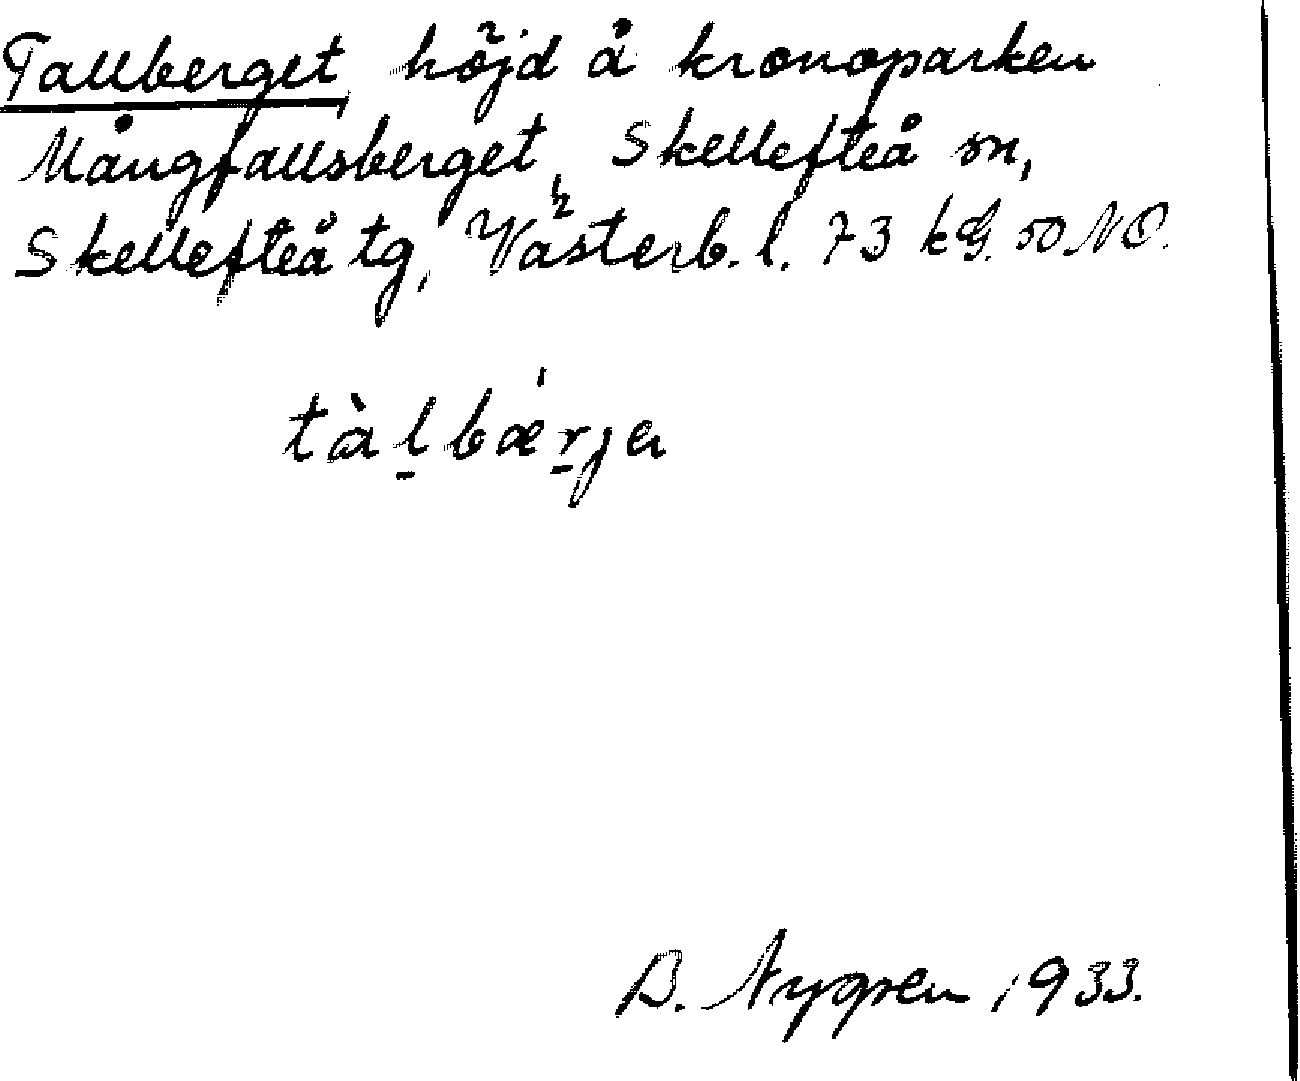 Tallberget höjd å kronoparken
Mångfallsberget, Skellefteå sn,
Skellefteå tg, Västerb. l. 73 kG. 50 NO.
tàl̠bær̠je
B. Nygren 1933.